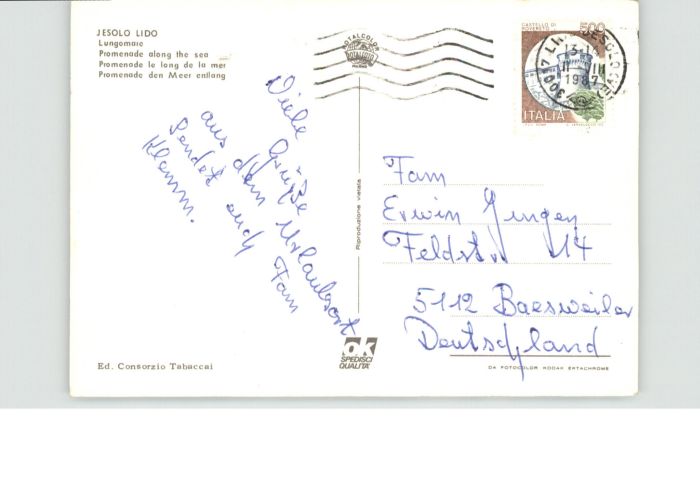 JESOLO LIDO
Lungomare
Promenade along the sea
Promenade le long de la mer
Promenade den Meer entlang
TOTALCOLOR
CASTELLO DI
ROVERETO
500
ITALIA
JESOLO
1987
Viele Grüße
aus dem Urlaubsort
sendet euch Fam
Klamm.
Riproduzione vietata
Fam
Erwin
Feldstr. 14
5112 Baesweiler
Deutschland
OK
SPEDISCI
QUALITÀ
Ed. Consorzio Tabaccai
DA FOTOCOLOR KODAK EKTACHROME